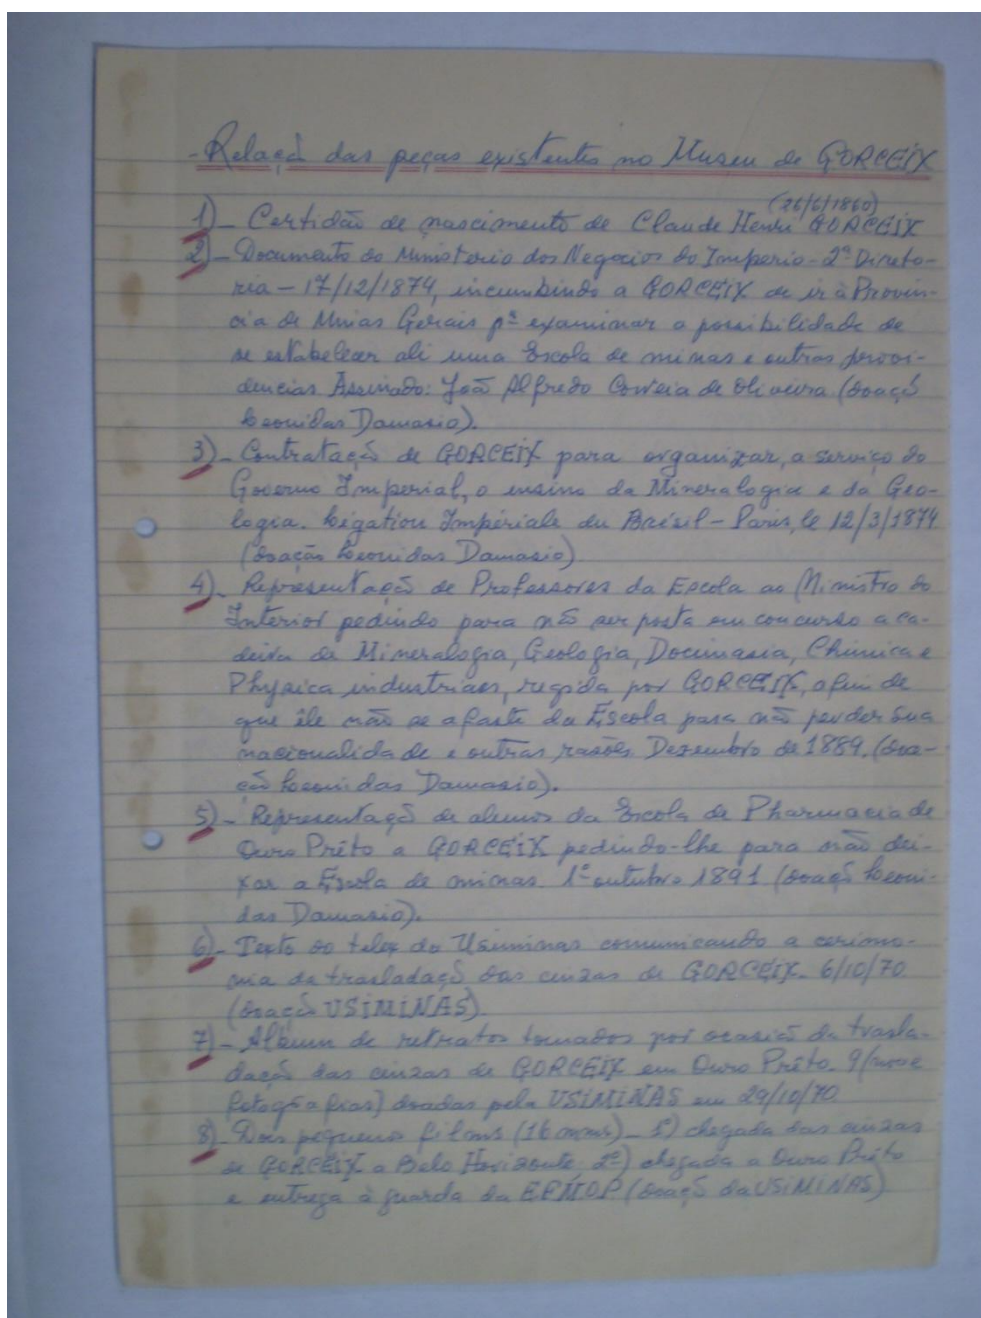 - Relação das peças existentes no Museu de GORCEIX
(26/6/1860)
1) - Certidão de nascimento de Claude Henri GORCEIX
2) - Documento do Ministerio dos Negocios do Imperio - 2ª Direto-
ria - 17/12/1874, incumbindo a GORCEIX de ir à Provin-
cia de Minas Gerais pª examinar a possibilidade de
se estabelecer ali uma Escola de minas e outras provi-
dencias. Assinado: João Alfredo Correia de Oliveira (doaçõ
Leonidas Damasio).
3) - Contratação de GORCEIX para organizar, a serviço do
Governo Imperial, o ensino da Mineralogia e da Geo-
logia. Légation Impériale du Brésil - Paris, le 12/3/1874
(doação Leonidas Damasio)
4) - Representação de Professores da Escola ao Ministro do
Interior pedindo para não ser posta em concurso a ca-
deira de Mineralogia, Geologia, Docimasia, Chimica e
Physica industriaes, regida por GORCEIX, afim de
que êle não se afaste da Escola para não perder sua
nacionalidade e outras rasões. Dezembro de 1889. (doa-
ção Leonidas Damasio).
5) - Representaçõ de alunos da Escola de Pharmacia de
Ouro Prêto a GORCEIX pedindo-lhe para não dei-
xar a Escola de minas 1º outubro 1891 (doaçõ Leoni-
das Damasio).
6) - Texto do telex da Usiminas comunicando a cerimo-
nia da trasladaçõ das cinzas de GORCEIX. 6/10/70
(doação USIMINAS)
7) - Album de retratos tomados por ocasião da trasla-
dação das cinzas de GORCEIX em Ouro Prêto. 9 (nove
fotografias) doadas pela USIMINAS em 29/10/70
8) - Dois pequenos films (16 mms) - 1º) chegada das cinzas
de GORCEIX a Belo Horizonte, 2º) chegada a Ouro Prêto
e entrega à guarda da EFMOP (doaçõ da USIMINAS)